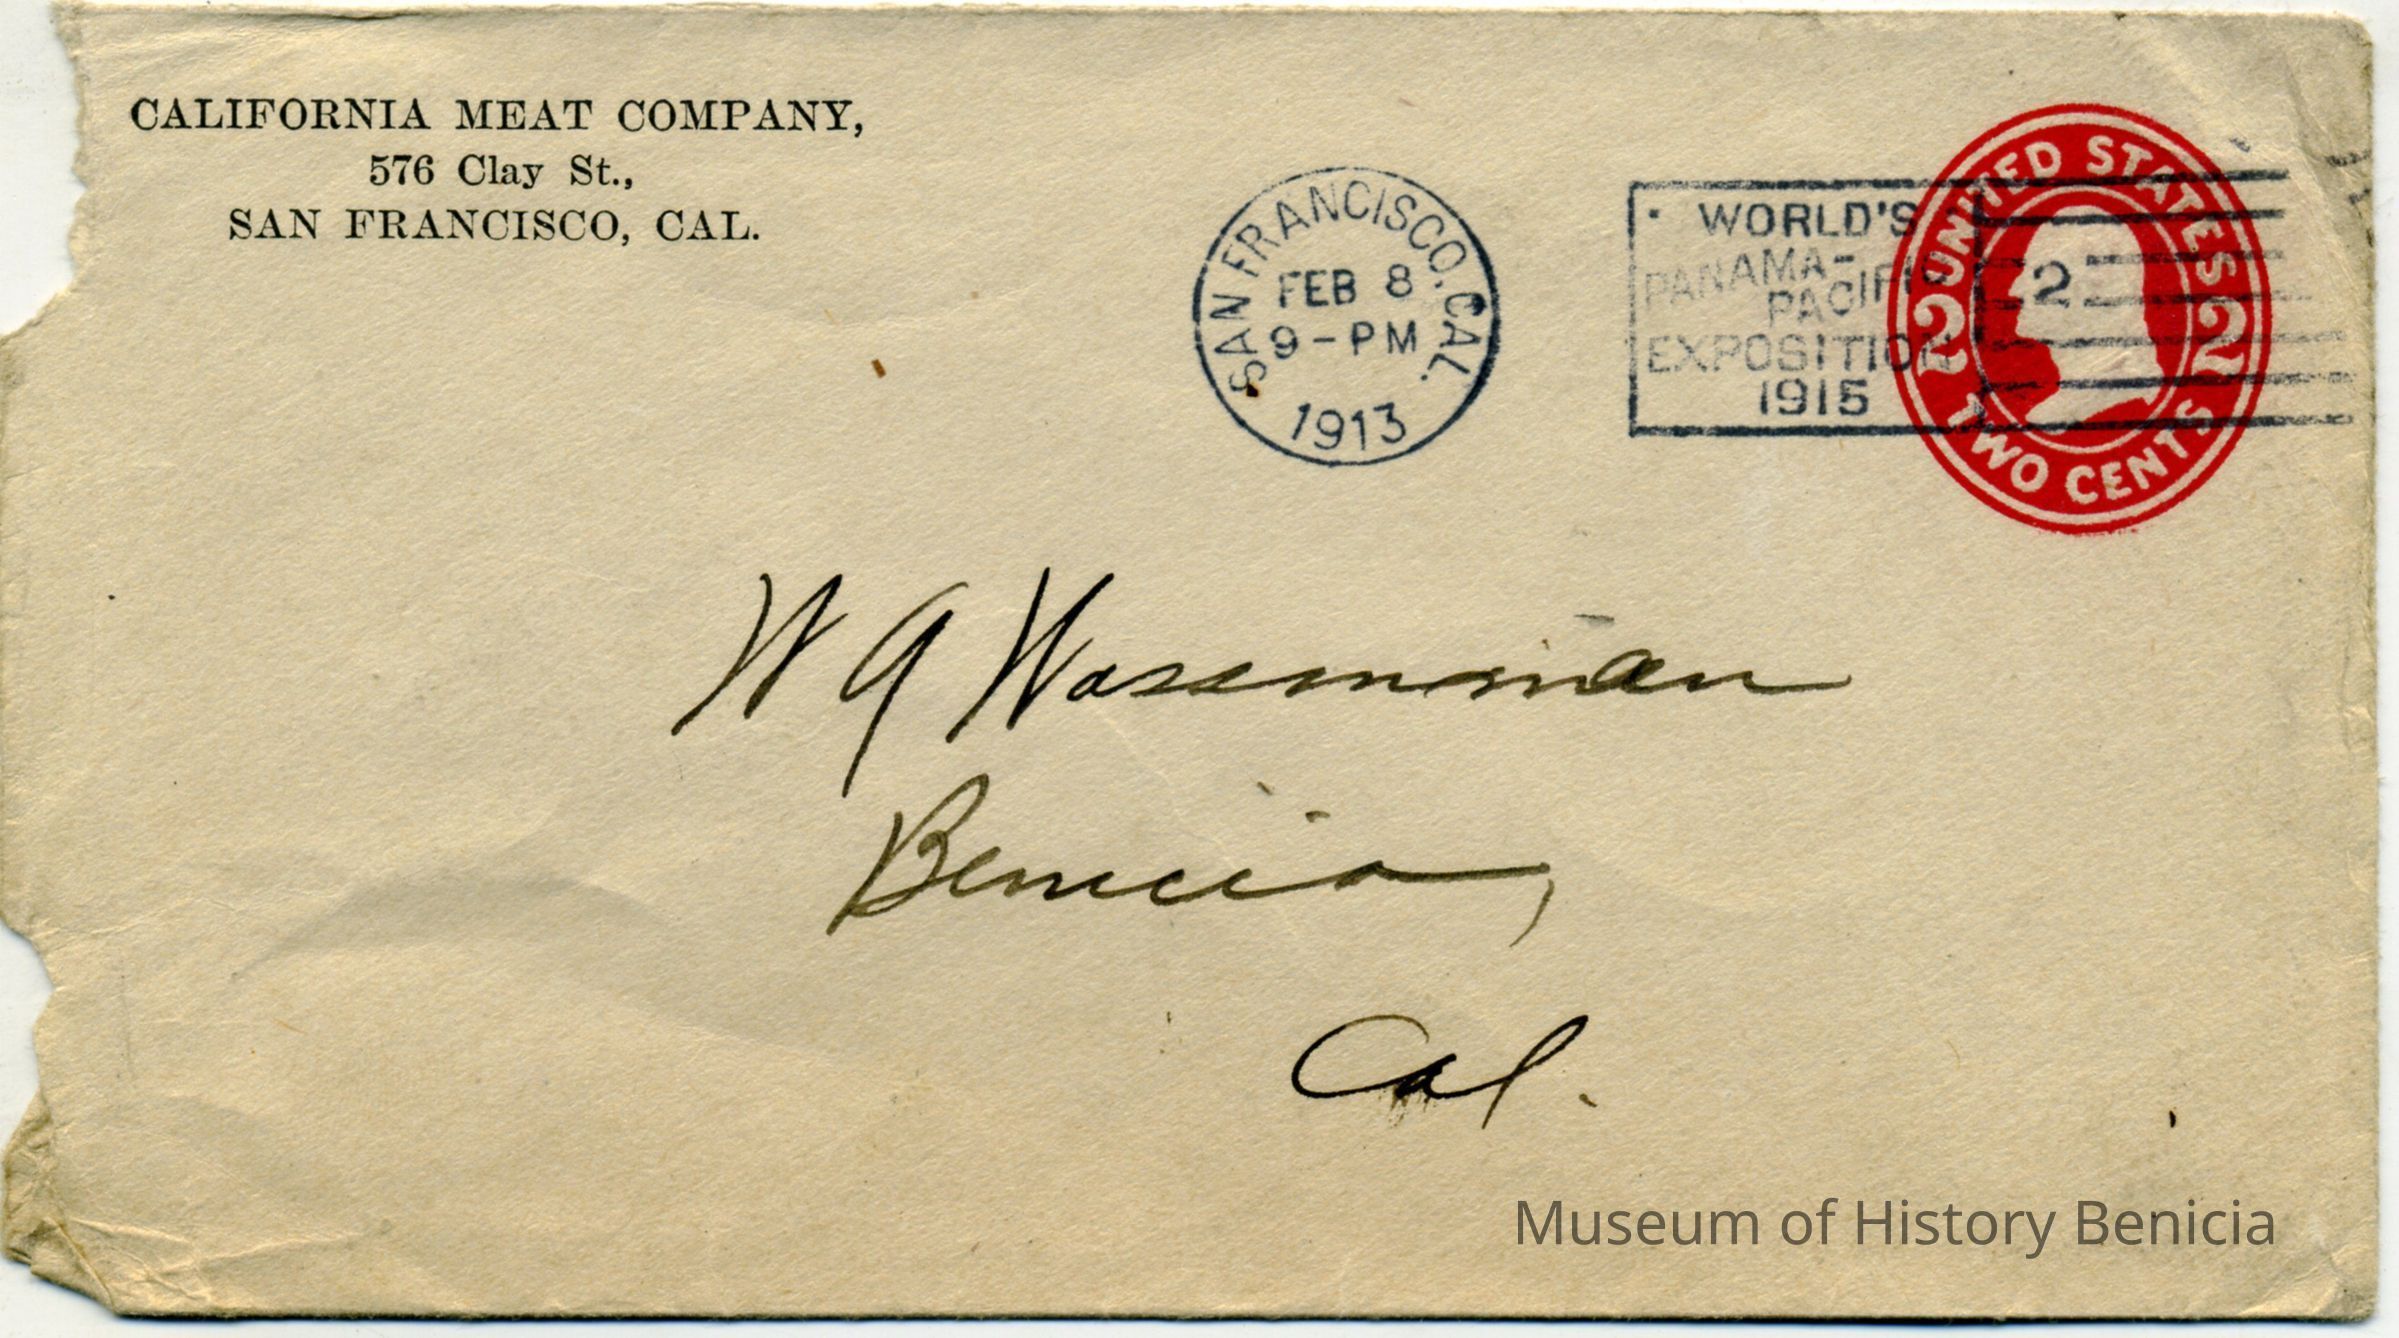 CALIFORNIA MEAT COMPANY,
576 Clay St.,
SAN FRANCISCO, CAL.
SAN FRANCISCO, CAL.
FEB 8
9-PM
1913
WORLD'S
PANAMA-
PACIFIC
EXPOSITION
1915
2
UNITED STATES
2 2
TWO CENTS
W A Wassmann
Benicia,
Cal.
Museum of History Benicia